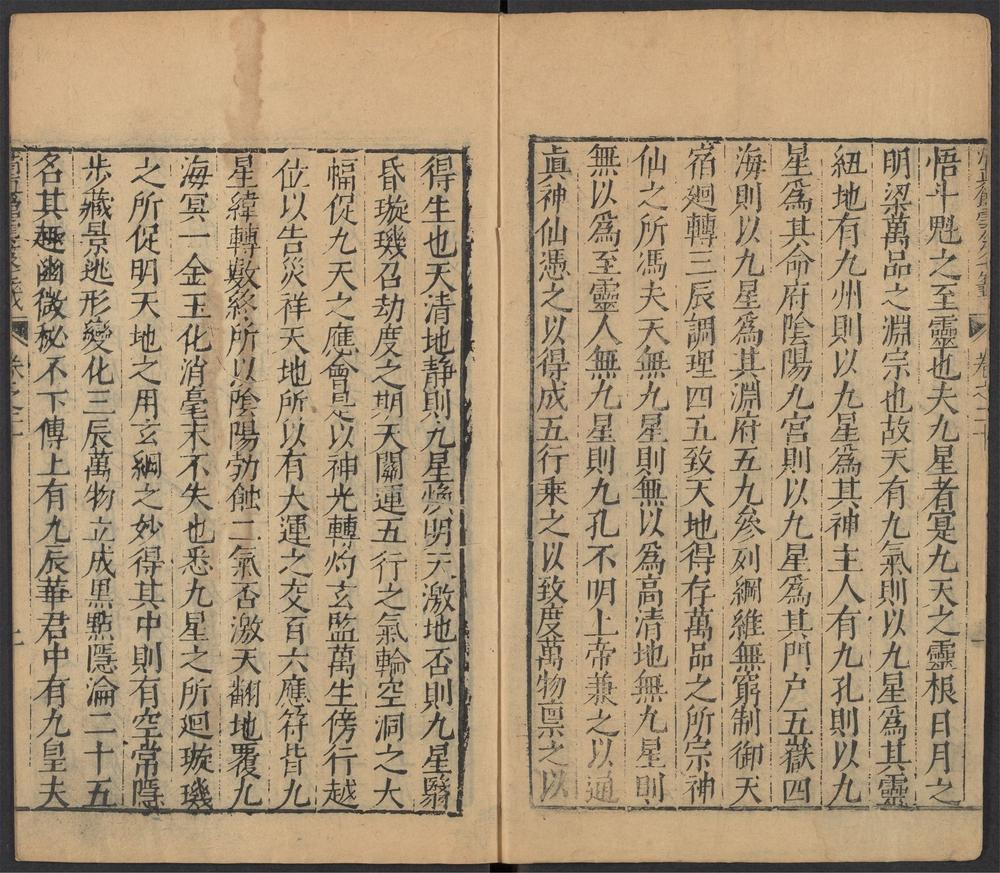 悟斗魁之至靈也夫九星者寔九天之靈根日月之
明梁萬品之淵宗也故天有九氣則以九星爲其靈
紐地有九州則以九星爲其神主人有九孔則以九
星爲其命府陰陽九宮則以九星爲其門户五嶽四
海則以九星爲其淵府五九參列綱維無窮制御天
宿廻轉三辰調理四五致天地得存萬品之所宗神
仙之所馮夫天無九星則無以爲高清地無九星則
無以爲至靈人無九星則九孔不明上帝兼之以通
眞神仙憑之以得成五行乗之以致度萬物禀之以
得生也天清地静則九星煥明天激地否則九星翳
昏璇璣召劫度之期天關運五行之氣輪空洞之大
幅促九天之應會是以神光轉灼玄監萬生傍行越
位以告災祥天地所以有大運之交百六應符皆九
星緯轉數終所以陰陽勃蝕二氣否激天翻地覆九
海冥一金玉化消毫末不失也悉九星之所廻璇璣
之所促明天地之用玄綱之妙得其中則有空常隱
歩藏景逃形變化三辰萬物立成黒㸃隱淪二十五
名其趣幽微秘不下傳上有九辰華君中有九皇夫
卷之二